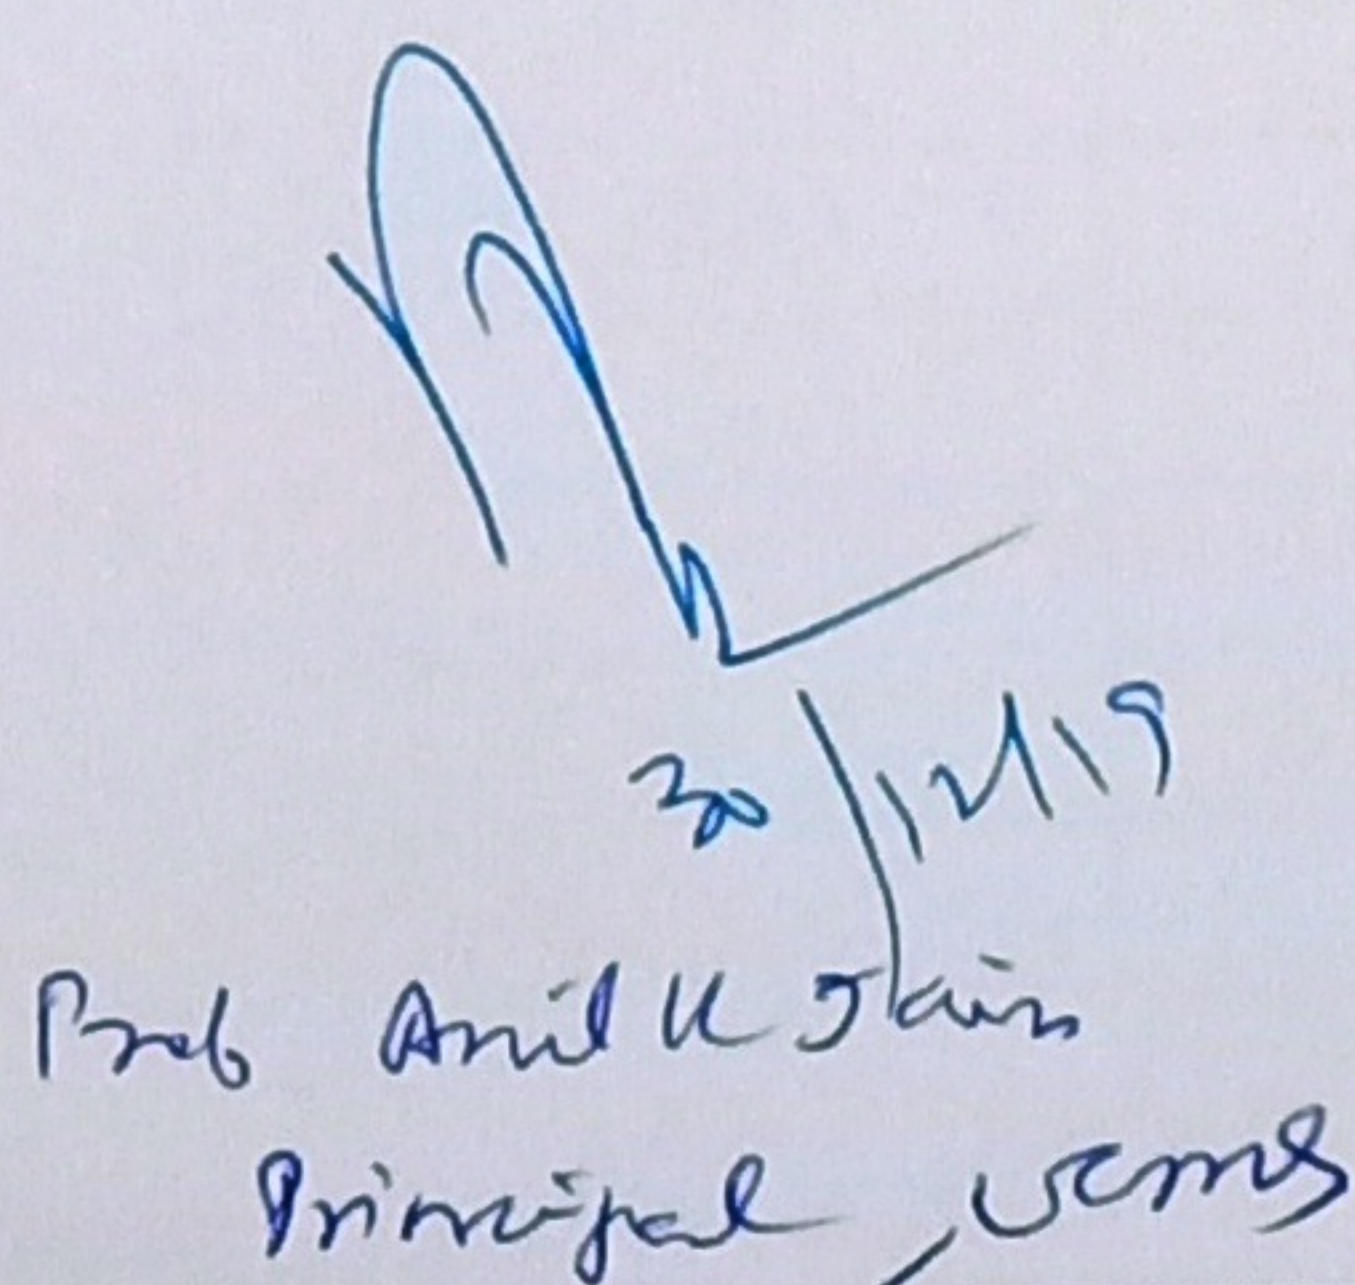 30/12/19
Prof Anil K Jain
Principal, UCMS